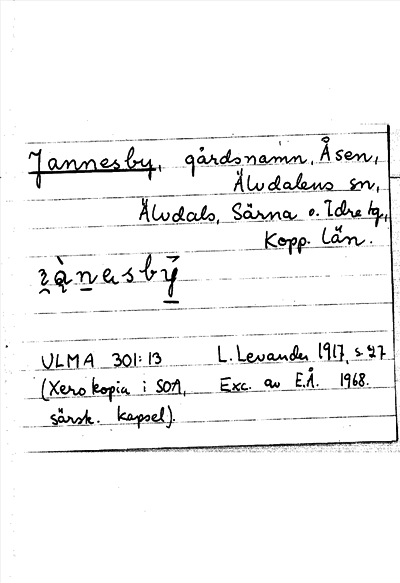 Jannesby, gårdsnamn, Åsen,
Älvdalens sn,
Älvdals, Särna o. Idre tg,
Kopp. län.
ULMA 301:13 L. Levander 1917, s. 27
(Xerokopia i SOA, Exc. av E.Å. 1968.
särsk. kapsel).